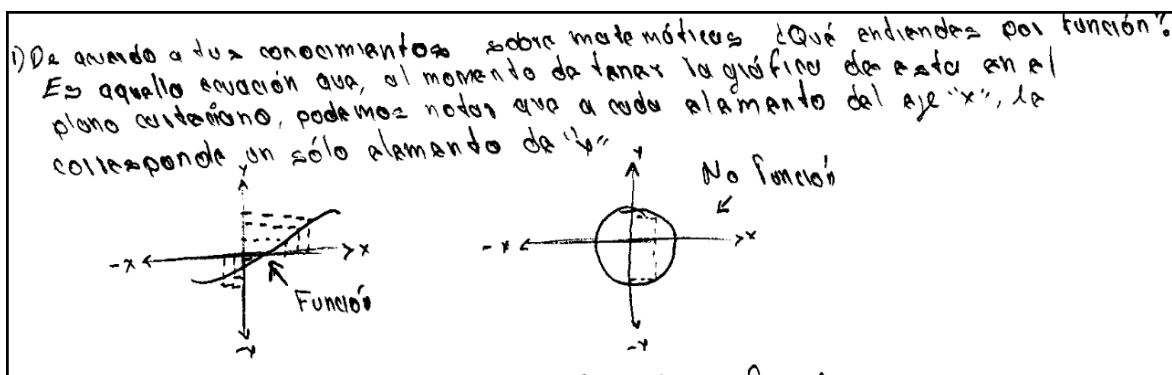 1) De acuerdo a tus conocimientos sobre matemáticas ¿Qué entiendes por función?
Es aquella ecuación que, al momento de tener la gráfica de esta en el
plano cartesiano, podemos notar que a cada elemento del eje "x", le
corresponde un sólo elemento de "y"
y
y
No función
-x
x
-x
x
Función
-y
-y